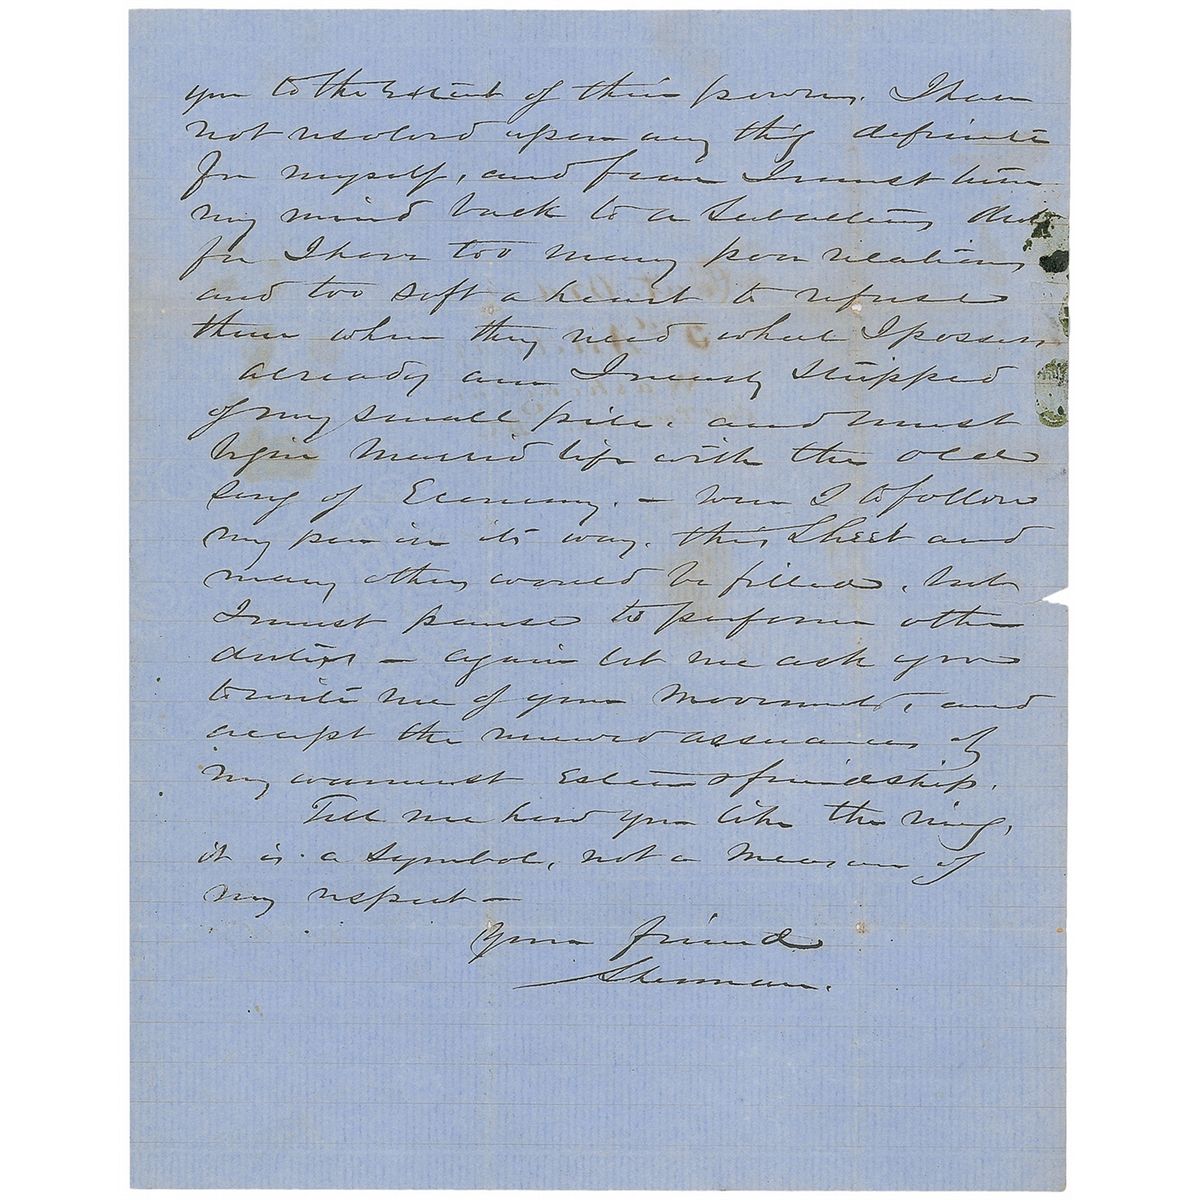 you to the Extent of their powers. I have
not resolved upon any thing definite
for myself, and fear I must turn
my mind back to a Subalterns
for I have too many poor relations
and too soft a heart to refuse
them when they need what I possess
already am I nearly stripped
of my small pile. and must
begin Married life with the old
song of Economy. — were I to follow
my pen in its way. this Sheet and
many others would be filled. but
I must pause to perform other
duties — again let me ask you
to write me of your movements, and
accept the renewed assurances of
my warmest Esteem & friendship.
Tell me how you like the ring,
it is a symbol, not a measure of
my respect —
Your friend
Sherman.